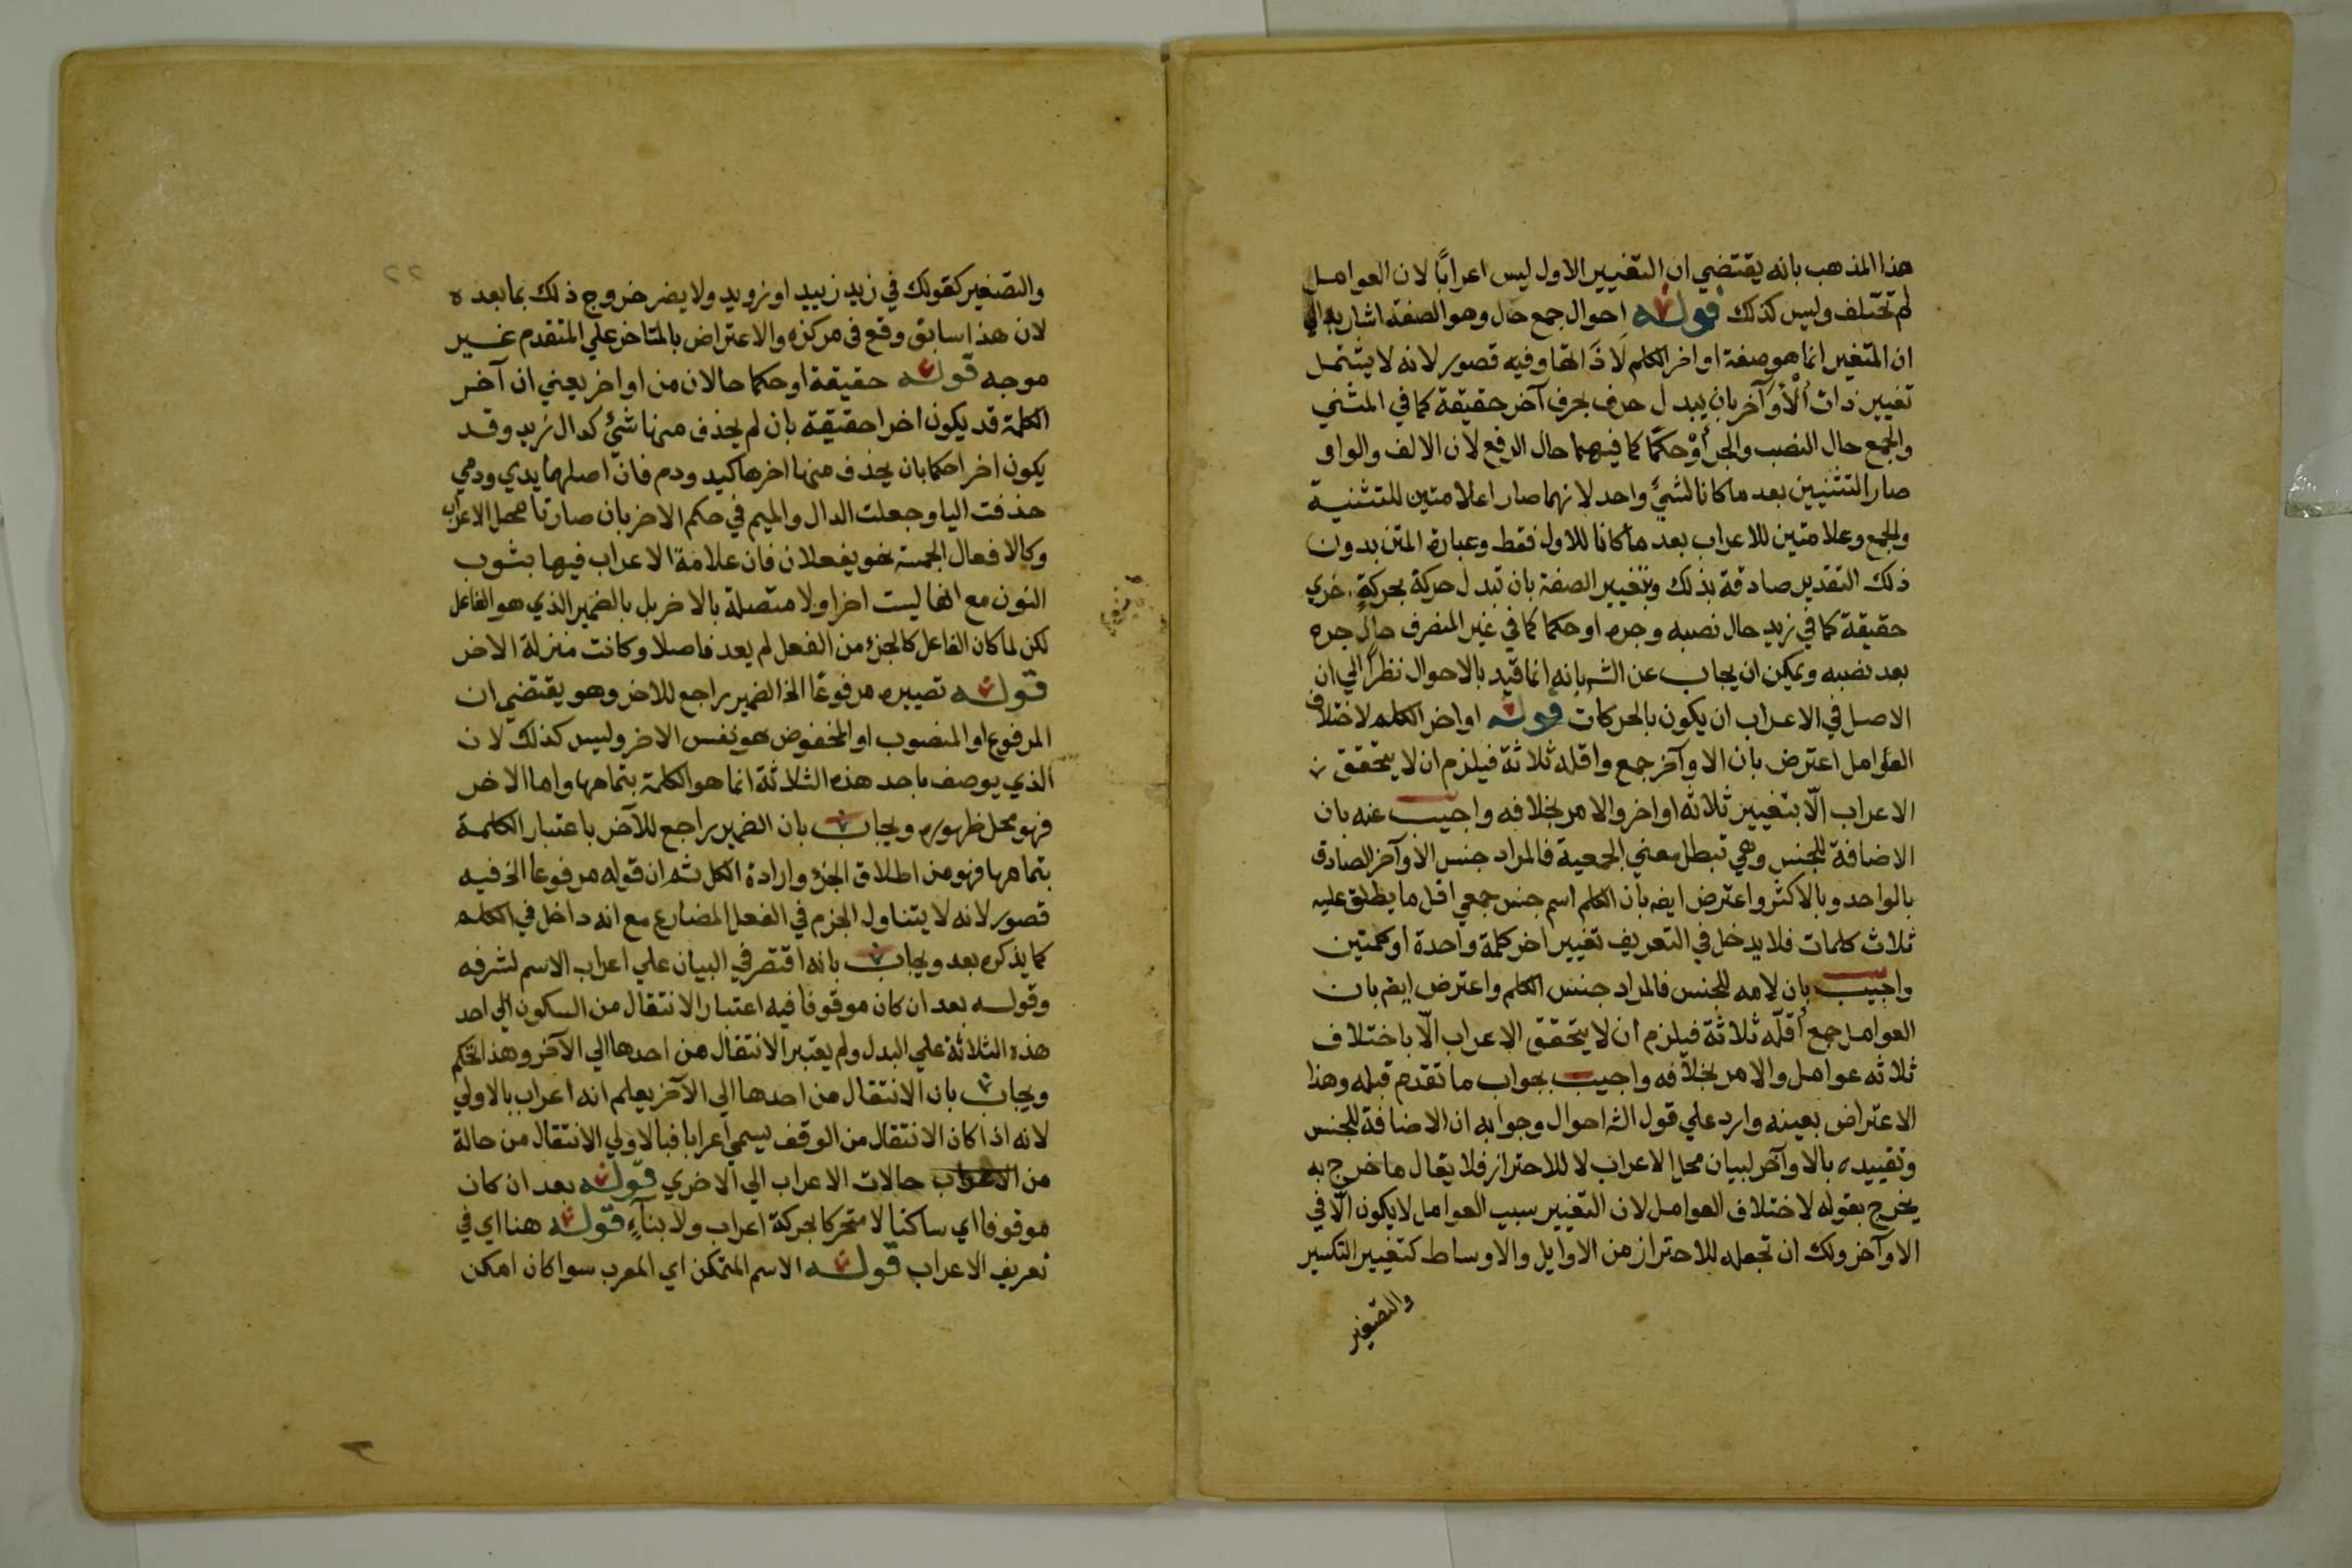 هذا المذهب بانه يقتضي ان التغيير الاول ليس اعرابًا لان العوامل
لم تختلف وليس كذلك قوله احوال جمع حال وهو الصفة اشار به الي
ان المتغير انما هو صفة اواخر الكلم لا ذاتها وفيه قصور لانه لا يشتمل
تغيير ذات الأوآخر بان يبدل حرف بحرف آخر حقيقة كما في المثني
والجمع حال النصب والجر أوْ حكمًا كما فيهما حال الرفع لان الالف والواو
صارا لشيئين بعد ما كانا لشيء واحد لانهما صارا علامتين للتثنية
والجمع وعلامتين للاعراب بعد ما كانا للاول فقط وعبارة المتن بدون
ذلك التقدير صادقة بذلك وبتغيير الصفة بان تبدل حركة بحركةٍ اخري
حقيقة كما في زيد حال نصبه وجره او حكما كما في غير المنصرف حال جره
بعد نصبه ويمكن ان يجاب عن الش بانه انما قيد بالاحوال نظراً الي ان
الاصل في الاعراب ان يكون بالحركات قوله اواخر الكلم لاختلاف
العوامل اعترض بان الاوآخر جمع واقله ثلاثة فيلزم ان لا يتحقق
الاعراب الّا بتغيير ثلاثه اواخر والامر بخلافه واجيب عنه بان
الاضافة للجنس وهي تبطل معني الجمعية فالمراد جنس الاوآخر الصادق
بالواحد وبالاكثر واعترض ايضا بان الكلم اسم جنس جمعي اقل ما يطلق عليه
ثلاث كلمات فلا يدخل في التعريف تغيير اخر كلمة واحدة او كلمتين
واجيب بان لامه للجنس فالمراد جنس الكلم واعترض ايضا بان
العوامل جمع أقلّه ثلاثة فيلزم ان لا يتحقق الاعراب الّا باختلاف
ثلاثه عوامل والامر بخلافه واجيب بجواب ما تقدم قبله وهذا
الاعتراض بعينه وارد علي قول الش احوال وجوابه ان الاضافة للجنس
وتقييده بالاوآخر لبيان محل الاعراب لا للاحتراز فلا يقال ما خرج به
يخرج بقوله لاختلاف العوامل لان التغيير سبب العوامل لا يكون الّا في
الاوآخر ولك ان تجعله للاحتراز من الاوايل والاوساط كتغيير التكسير
والتصغير
والتصغير كقولك في زيد زييد او زويد ولا يضر خروج ذلك بما بعده
لان هذا سابق وقع في مركزه والاعتراض بالمتاخر علي المتقدم غير
موجه قوله حقيقة او حكما حالان من اواخر يعني ان آخر
الكلمة قد يكون اخرا حقيقة بان لم يحذف منها شيْ كدال زيد وقد
يكون اخرا حكما بان يحذف منها اخرها كيد ودم فانّ اصلهما يدي ودمي
حذفت اليا وجعلت الدال والميم في حكم الاخر بان صارتا محل الاعراب
وكالافعال الخمسة نحو يفعلان فان علامة الاعراب فيها بثوب
النون مع انها ليست اخرا ولا متصلة بالاخر بل بالضمير الذي هو الفاعل
لكن لما كان الفاعل كالجزء من الفعل لم يعد فاصلا وكانت منزلة الاخر
قوله تصييره مرفوعًا الخ الضمير راجع للاخر وهو يقتضي ان
المرفوع او المنصوب او المخفوض هو نفس الاخر وليس كذلك لان
الذي يوصف باحد هذه الثلاثة انما هو الكلمة بتمامها واما الاخر
فهو محل ظهوره ويجاب بان الضمير راجع للآخر باعتبار الكلمة
بتمامها فهو من اطلاق الجزء وارادة الكل ثم ان قوله مرفوعا الخ فيه
قصور لانه لا يتناول الجزم في الفعل المضارع مع انه داخل في الكلم
كما يذكره بعد ويجاب بانه اقتصر في البيان علي اعراب الاسم لشرفه
وقوله بعد ان كان موقوفا فيه اعتبار الانتقال من السكون الي احد
هذه الثلاثة علي البدل ولم يعتبر الانتقال من احدها الي الآخر وهذا تحكم
ويجاب بان الانتقال من احدها الي الآخر يعلم انه اعراب بالاولي
لانه اذا كان الانتقال من الوقف يسمي اعرابا فبالاولي الانتقال من حالة
من الاعراب حالات الاعراب الي الاخري قوله بعد ان كان
موقوفا اي ساكنا لا متحركا بحركة اعراب ولا بناءٍ قوله هنا اي في
تعريف الاعراب قوله الاسم المتمكن اي المعرب سوا كان امكن